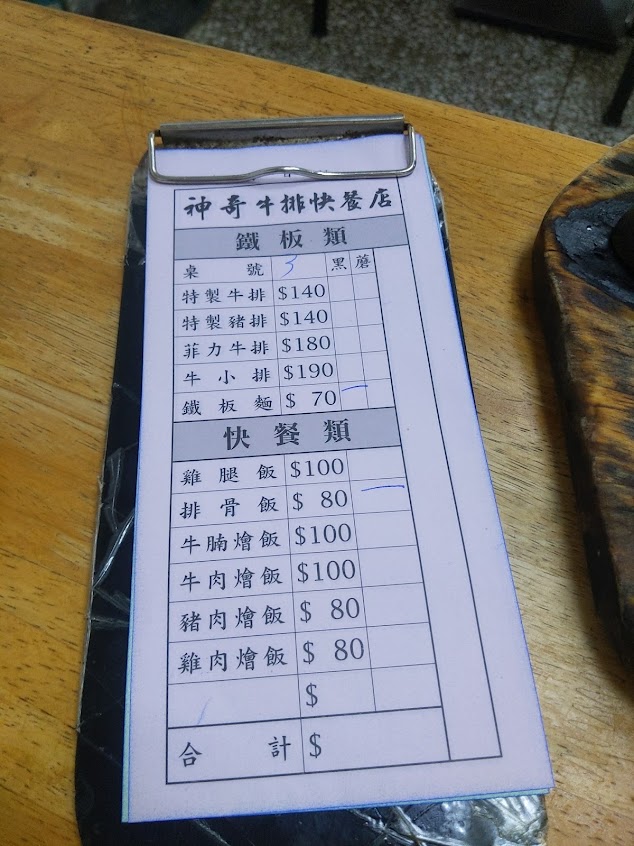 神奇牛排快餐店
鐵板類
桌號 3 黑 蘑
特製牛排 $140
特製豬排 $140
菲力牛排 $180
牛小排 $190
鐵板麵 $ 70 一
快餐類
雞腿飯 $100
排骨飯 $ 80 一
牛腩燴飯 $100
牛肉燴飯 $100
豬肉燴飯 $ 80
雞肉燴飯 $ 80
$
合計 $